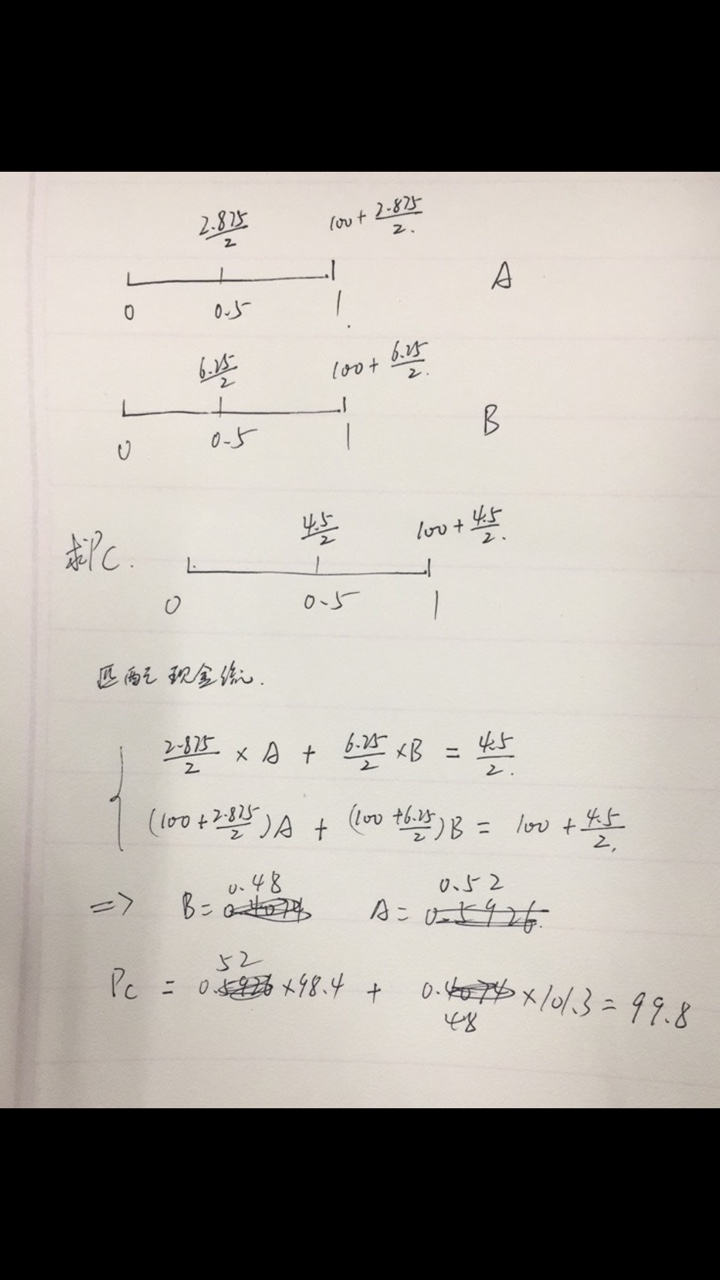 2.875/2 100 + 2.875/2.
0 0.5 1. A
6.25/2 100 + 6.25/2.
0 0.5 1 B
求PC. 4.5/2 100 + 4.5/2.
0 0.5 1
匹配 现金流.
2.875/2 × A + 6.25/2 × B = 4.5/2.
(100 + 2.875/2)A + (100 + 6.25/2)B = 100 + 4.5/2.
=> B = 0.48 A = 0.52
Pc = 0.52 × 98.4 + 0.48 × 101.3 = 99.8